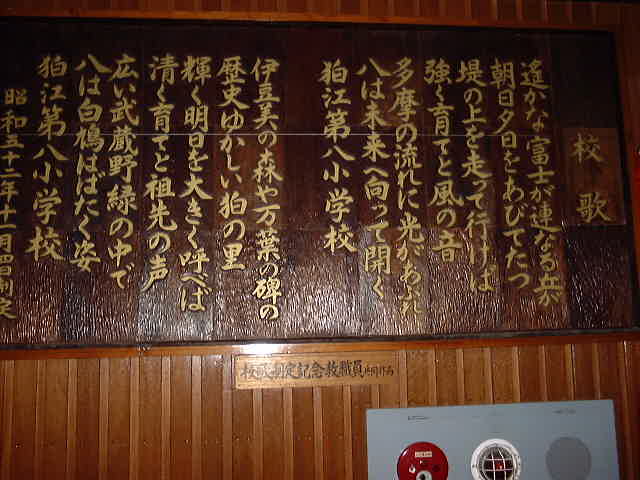 校歌
遙かな富士が連なる丘が
朝日夕日をあびてたつ
堤の上を走って行けば
強く育てと風の音
多摩の流れに光があふれ
八は未来へ向って開く
狛江第八小学校
伊豆美の森や万葉の碑の
歴史ゆかしい狛の里
輝く明日を大きく呼べば
清く育てと祖先の声
広い武蔵野緑の中で
八は白鳩はばたく姿
狛江第八小学校
昭和五十二年十一月四日制定
校歌制定記念教職員共同作品